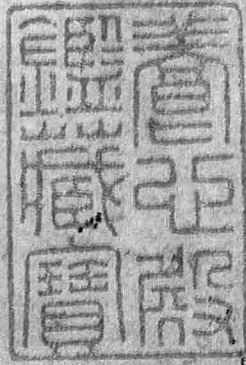 養心殿
鑑藏寶